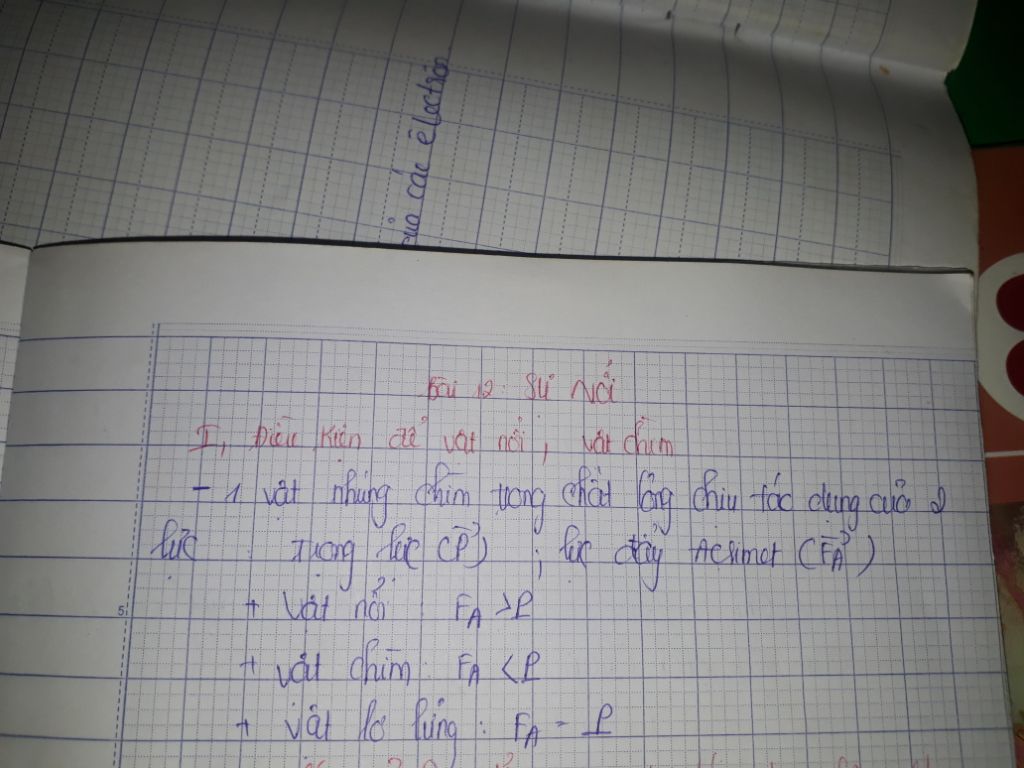 của các êlectrôn
Bài 12: Sự Nổi
I, Điều kiện để vật nổi, vật chìm
- 1 vật nhúng chìm trong chất lỏng chịu tác dụng của 2
lực trọng lực (P), lực đẩy Acsimet (FA)
+ Vật nổi FA > P
+ vật chìm: FA < P
+ vật lơ lửng: FA = P
5